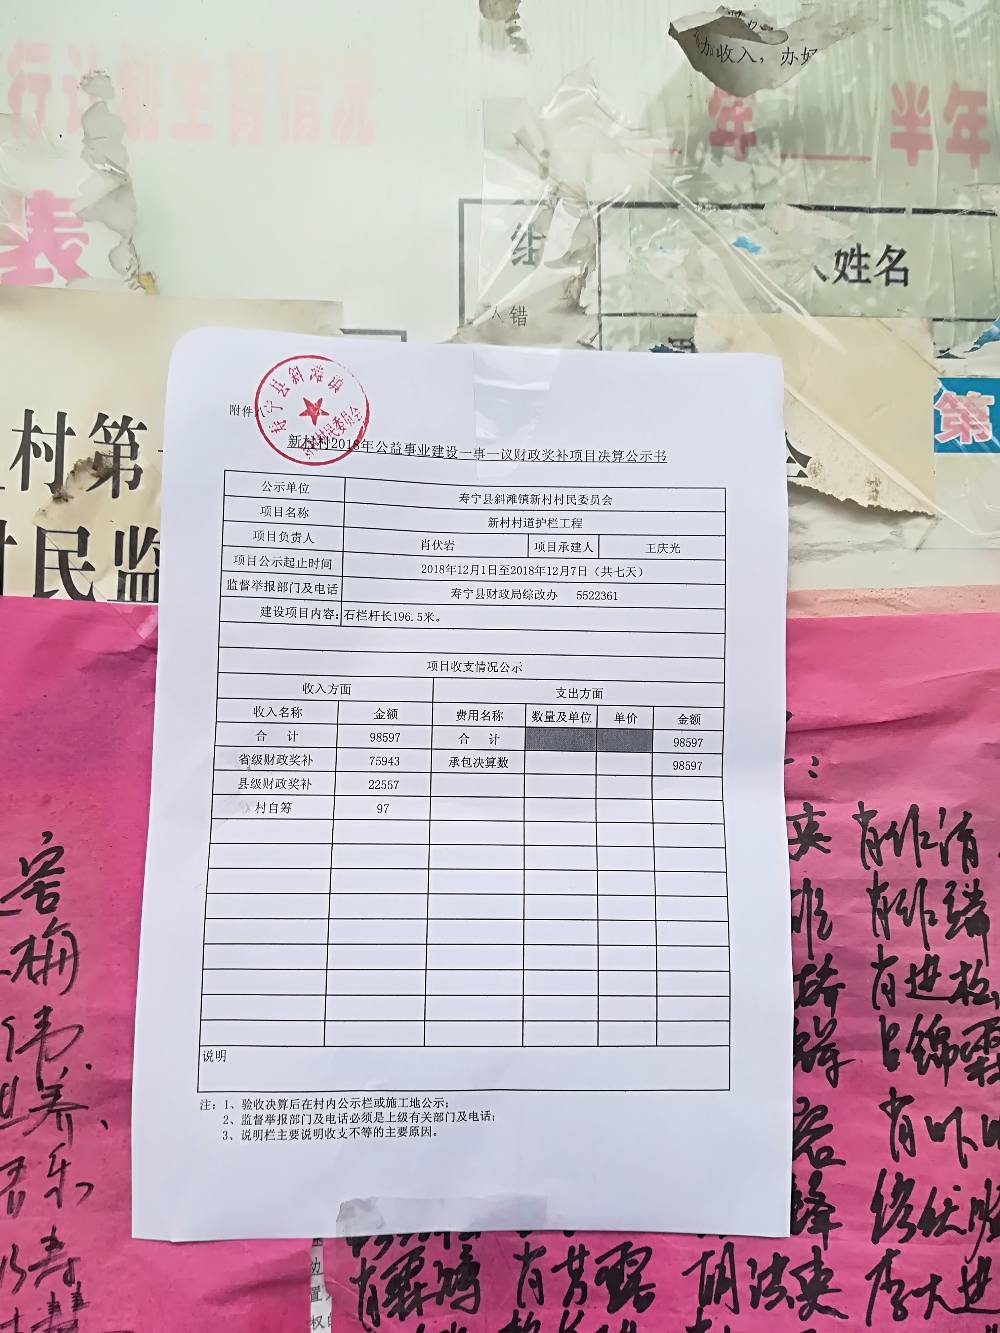 加收入，办好
行计划生育情况
年 半年
表
姓名
错
第
村第
民监
寿宁县斜滩镇
新村村民委员会
附件八
新村村2018年公益事业建设一事一议财政奖补项目决算公示书
公示单位 寿宁县斜滩镇新村村民委员会
项目名称 新村村道护栏工程
项目负责人 肖伏岩 项目承建人 王庆光
项目公示起止时间 2018年12月1日至2018年12月7日（共七天）
监督举报部门及电话 寿宁县财政局综改办 5522361
建设项目内容: 石栏杆长196.5米。
项目收支情况公示
收入方面 支出方面
收入名称 金额 费用名称 数量及单位 单价 金额
合 计 98597 合 计 98597
省级财政奖补 75943 承包决算数 98597
县级财政奖补 22557
村自筹 97
说明
注：1、验收决算后在村内公示栏或施工地公示；
2、监督举报部门及电话必须是上级有关部门及电话；
3、说明栏主要说明收支不等的主要原因。
梅
伟
养
乐
寿
肖作清
肖作鳞
肖进枝
锦霖
容 肖
锋
肖霖鸿 肖芳露 胡法来 李大进